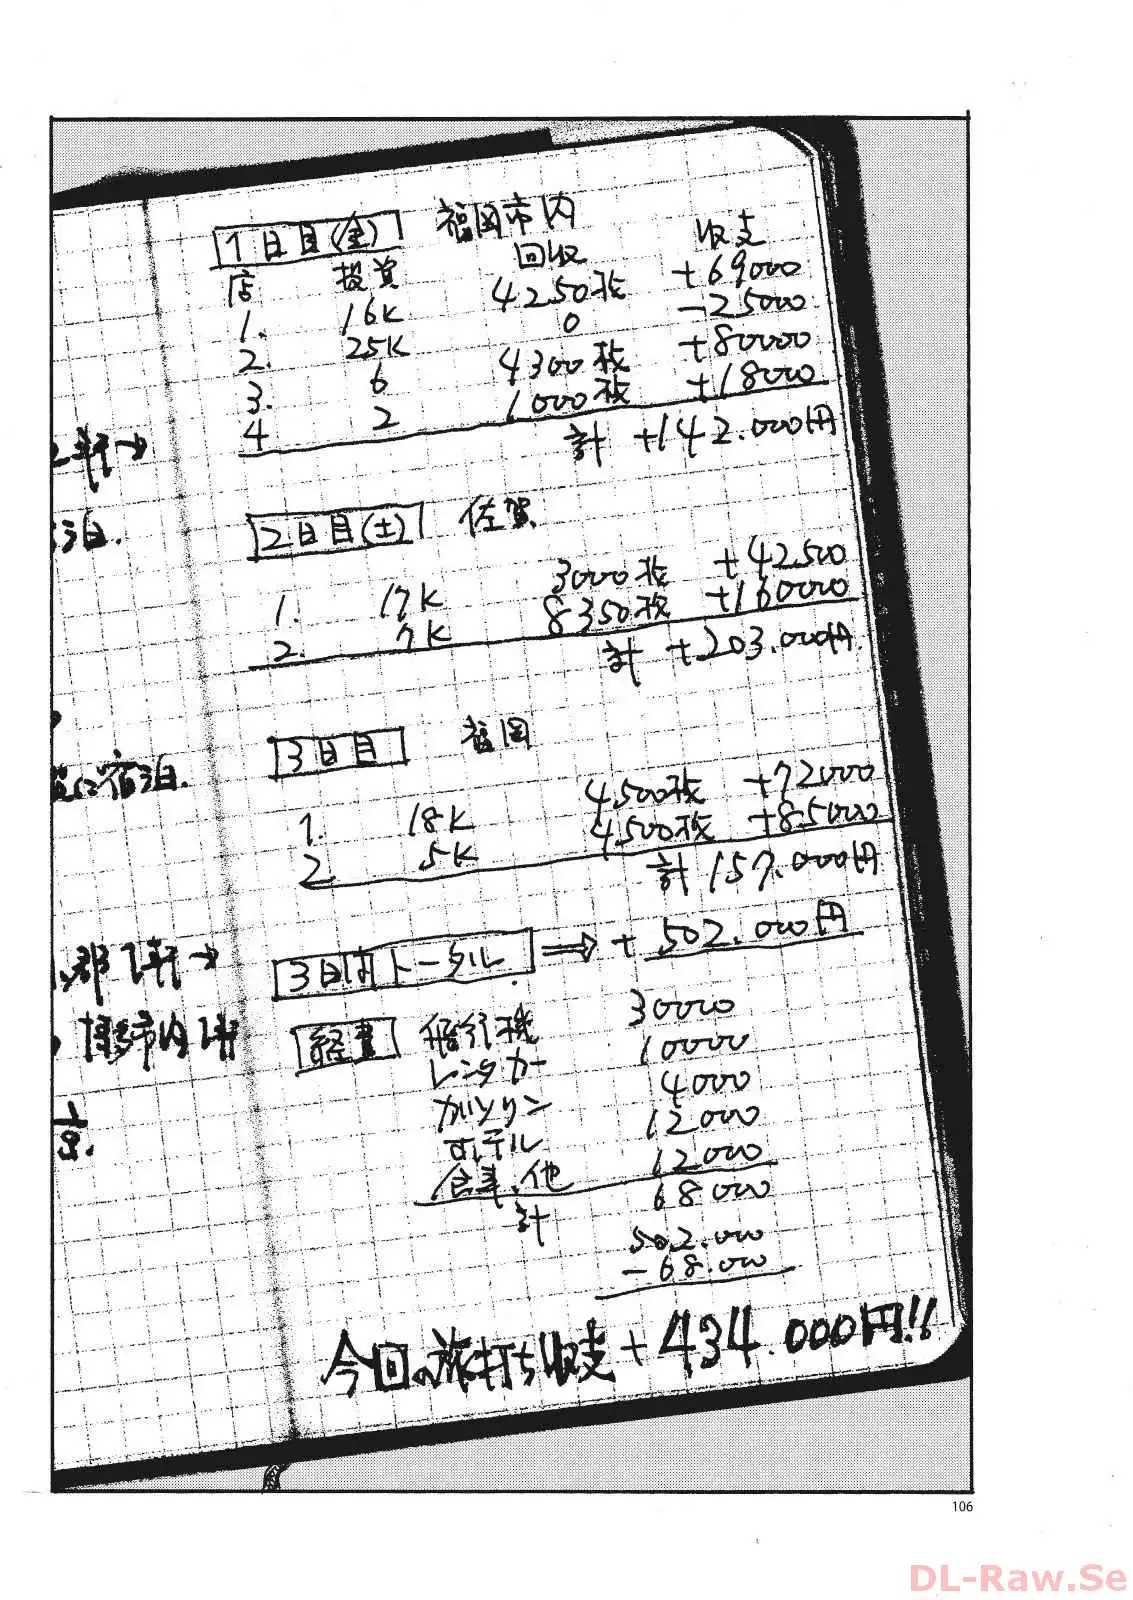 1日目(金) 福岡市内
店 投資 回収 収支
1. 16K 4250枚 +69000
2. 25K 0 -25000
3. 6 4300枚 +80000
4 2 1000枚 +18000
計 +142.000円
2軒→
泊.
2日目(土) 佐賀
1. 17K 3000枚 +42500
2. 7K 8350枚 +160000
計 +203.000円
3日目 福岡
に宿泊.
1. 18K 4500枚 +72000
2 5K 4500枚 +85000
計 157.000円
郡1軒→
3日間トータル ⇒ + 502.000円
市内1軒
経費 飛行機 30000
レンタカー 10000
ガソリン 4000
ホテル 12000
食事、他 12000
計 68000
502.000
-68.000
今回の旅打ち収支+434.000円!!
106
DL-Raw.Se